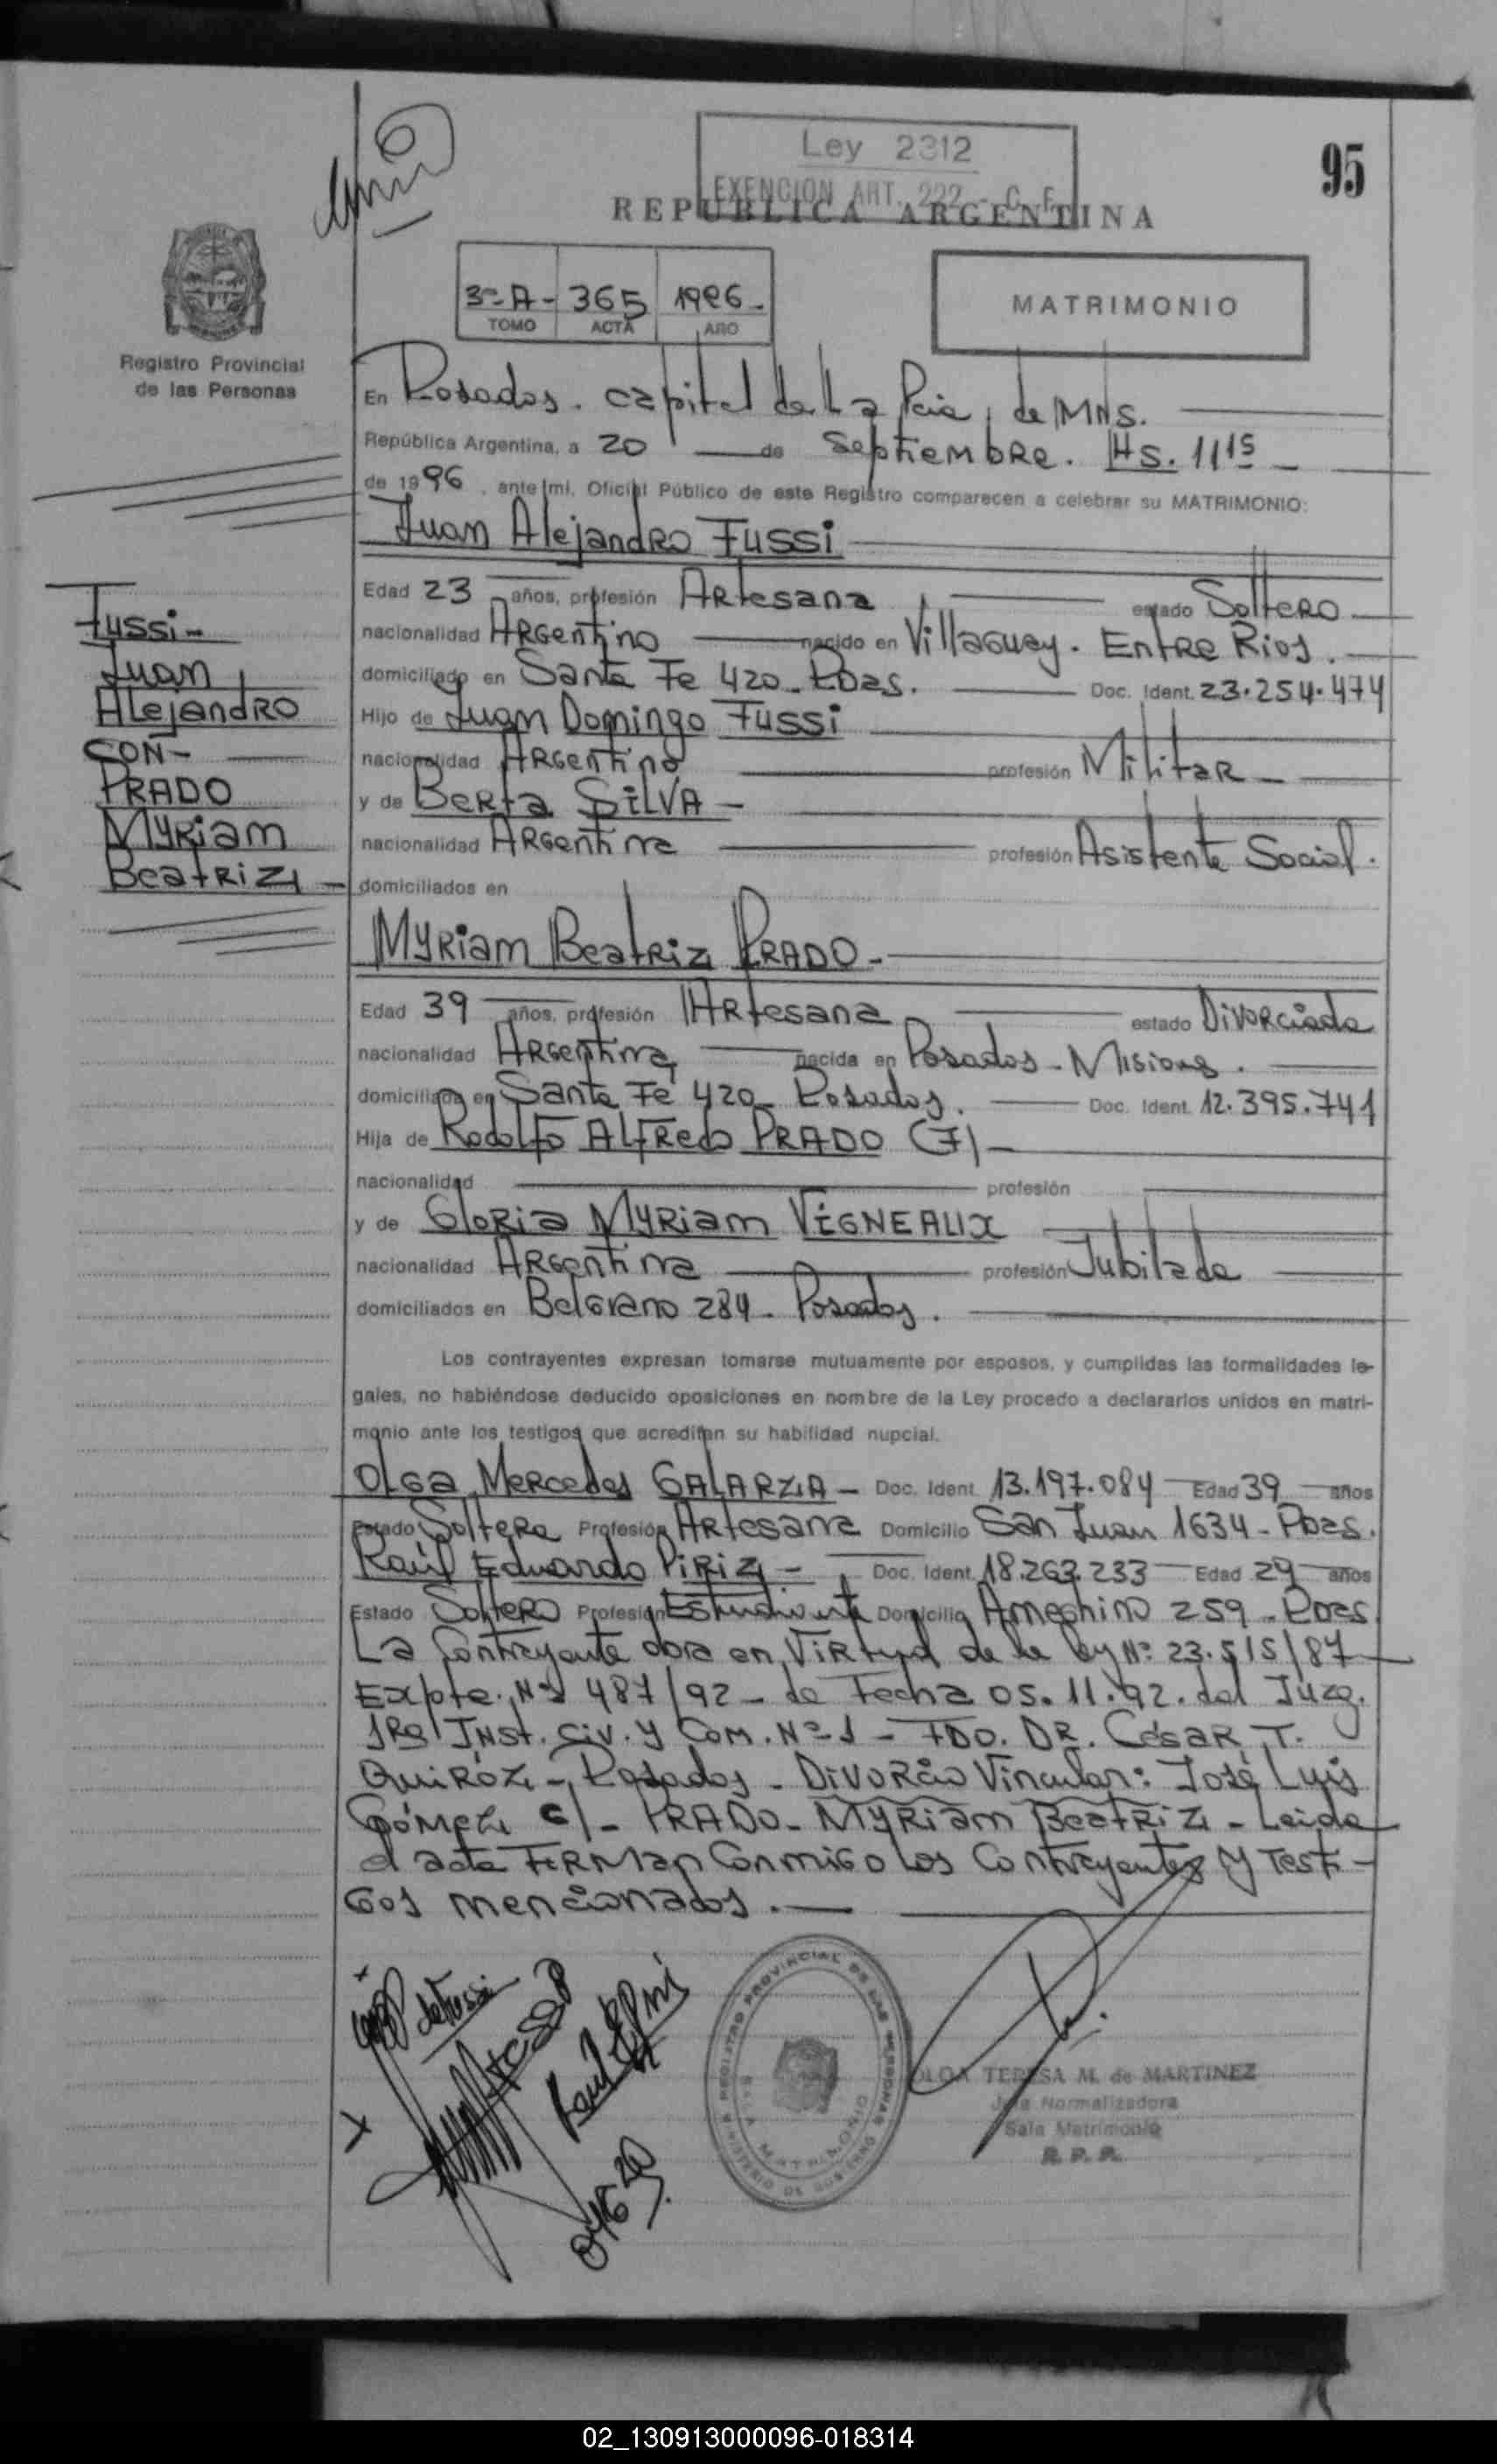 Ley 2312
EXENCION ART. 222 - C. F.
95
REPUBLICA ARGENTINA
3º-A- 365 1996-
TOMO ACTA AÑO
MATRIMONIO
Registro Provincial
de las Personas
En Posadas. capital de la Pcia, de MNS.
República Argentina, a 20 de Septiembre. Hs. 11 15
de 1996, ante mi, Oficial Público de este Registro comparecen a celebrar su MATRIMONIO:
Juan Alejandro FUSSI
Edad 23 años, profesión Artesana estado Soltero
nacionalidad Argentino nacido en Villaguay. Entre Rios.
domiciliado en Santa Fe 420 - Pdas. Doc. Ident. 23.254.474
Hijo de Juan Domingo FUSSI
nacionalidad Argentino profesión Militar -
y de Berta SILVA -
nacionalidad Argentina profesión Asistente Social.
domiciliados en
Fussi -
Juan
Alejandro
CON -
PRADO
Myriam
Beatriz -
Myriam Beatriz PRADO -
Edad 39 años, profesión Artesana estado Divorciada
nacionalidad Argentina nacida en Posadas - Misiones.
domiciliada en Santa Fe 420 - Posadas. Doc. Ident. 12.395.741
Hija de Rodolfo Alfredo PRADO (F) -
nacionalidad profesión
y de Gloria Myriam VIGNEAUX
nacionalidad Argentina profesión Jubilada
domiciliados en Belgrano 284 - Posadas.
Los contrayentes expresan tomarse mutuamente por esposos, y cumplidas las formalidades le-
gales, no habiéndose deducido oposiciones en nombre de la Ley procedo a declararlos unidos en matri-
monio ante los testigos que acreditan su habilidad nupcial.
Olga Mercedes GALARZA - Doc. Ident. 13.197.084 Edad 39 años
Estado Soltera Profesión Artesana Domicilio San Juan 1634 - Pdas.
Raúl Eduardo PIRIZ - Doc. Ident. 18.263.233 Edad 29 años
Estado Soltero Profesión Estudiante Domicilio Ameghino 259 - Pdas.
La Contrayente obra en Virtud de la ley Nº 23.515/87
Expte. Nº 487/92 - de Fecha 05.11.92. del Juzg.
1ra Inst. Civ. y Com. Nº 1 - FDO. DR. César T.
Quiróz - Posadas - Divorcio Vincular: José Luis
Gómez c/- PRADO - Myriam Beatriz - Leida
el acta Firman Conmigo los Contrayentes y Testi-
gos mencionados.
de Fussi
REGISTRO PROVINCIAL DE LAS PERSONAS
MINISTERIO DE GOBIERNO
SALA MATRIMONIO
OLGA TERESA M. de MARTINEZ
Jefa Normalizadora
Sala Matrimonio
R. P. P.
02_130913000096-018314